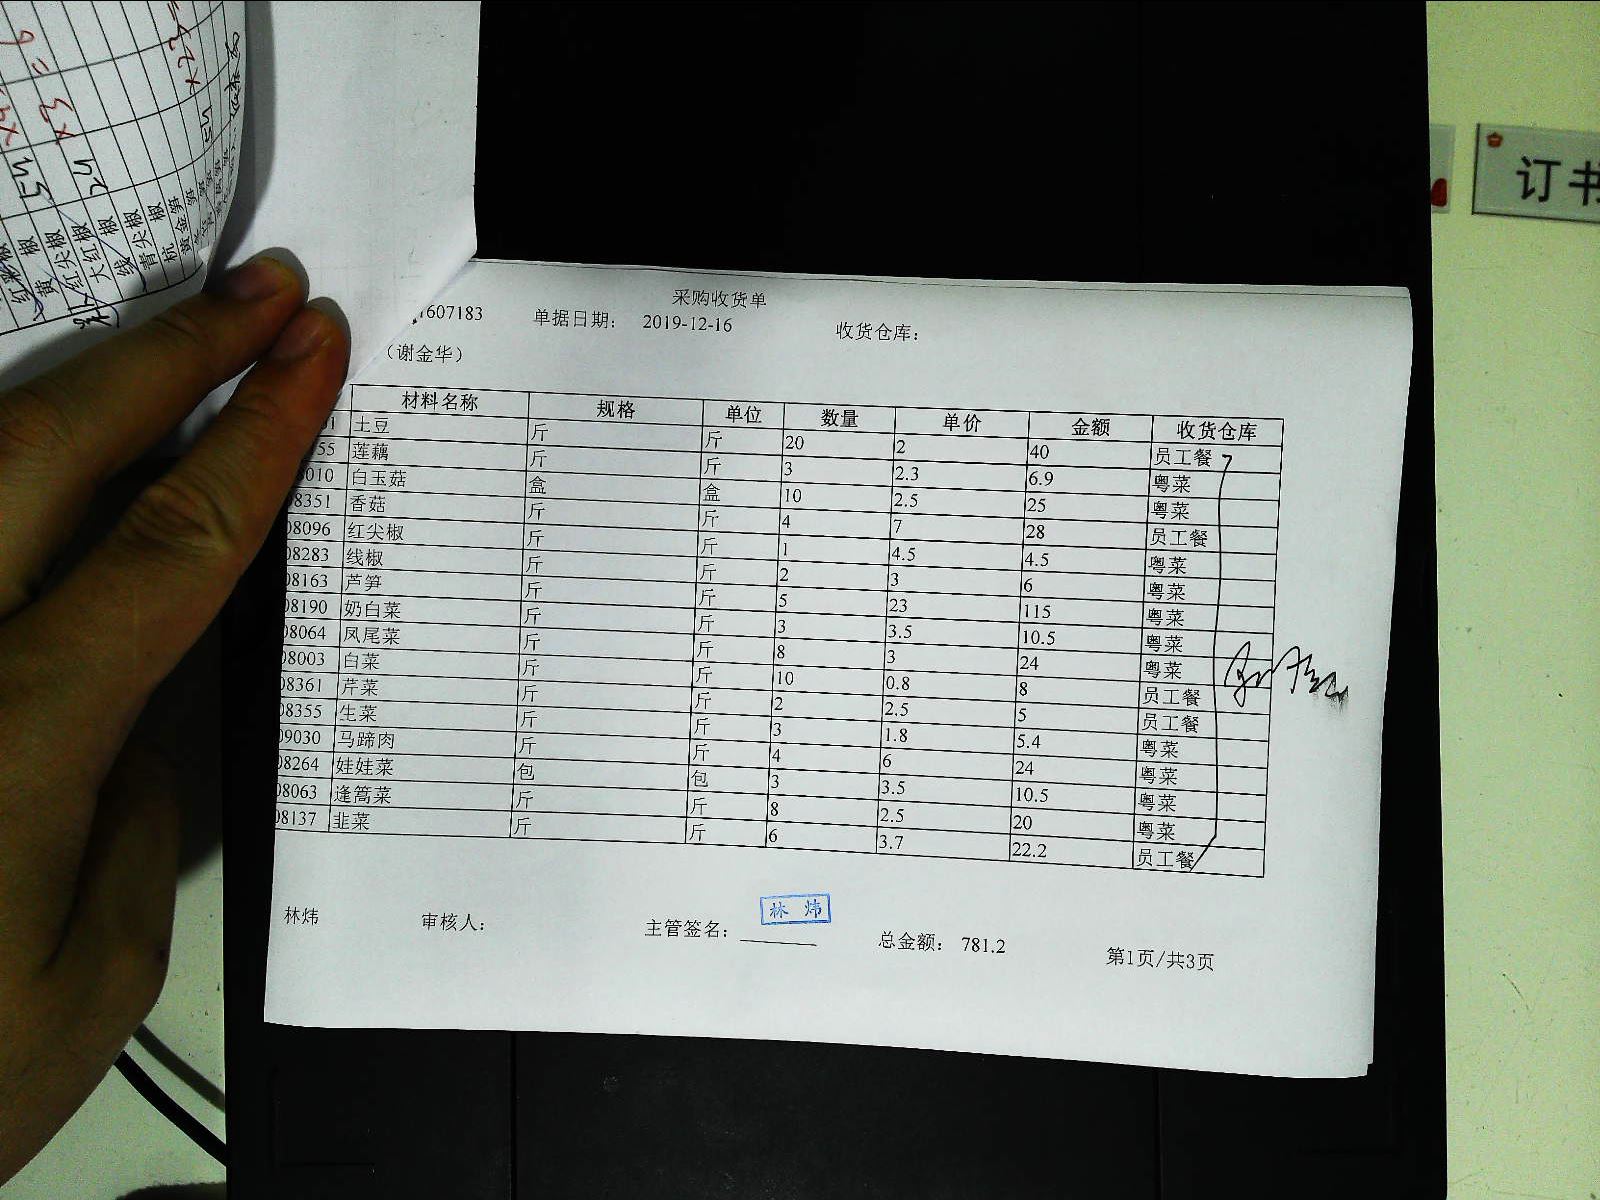 订书
采购收货单
1607183 单据日期： 2019-12-16 收货仓库：
（谢金华）
材料名称 规格 单位 数量 单价 金额 收货仓库
01 土豆 斤 斤 20 2 40 员工餐
55 莲藕 斤 斤 3 2.3 6.9 粤菜
010 白玉菇 盒 盒 10 2.5 25 粤菜
08351 香菇 斤 斤 4 7 28 员工餐
08096 红尖椒 斤 斤 1 4.5 4.5 粤菜
08283 线椒 斤 斤 2 3 6 粤菜
08163 芦笋 斤 斤 5 23 115 粤菜
08190 奶白菜 斤 斤 3 3.5 10.5 粤菜
08064 凤尾菜 斤 斤 8 3 24 粤菜
08003 白菜 斤 斤 10 0.8 8 员工餐
08361 芹菜 斤 斤 2 2.5 5 员工餐
08355 生菜 斤 斤 3 1.8 5.4 粤菜
09030 马蹄肉 斤 斤 4 6 24 粤菜
08264 娃娃菜 包 包 3 3.5 10.5 粤菜
08063 逢篙菜 斤 斤 8 2.5 20 粤菜
08137 韭菜 斤 斤 6 3.7 22.2 员工餐
林炜 审核人： 主管签名： 林炜 总金额： 781.2 第1页/共3页
黄椒
红尖椒
大红椒
线椒
青尖椒
杭椒
黄金笋